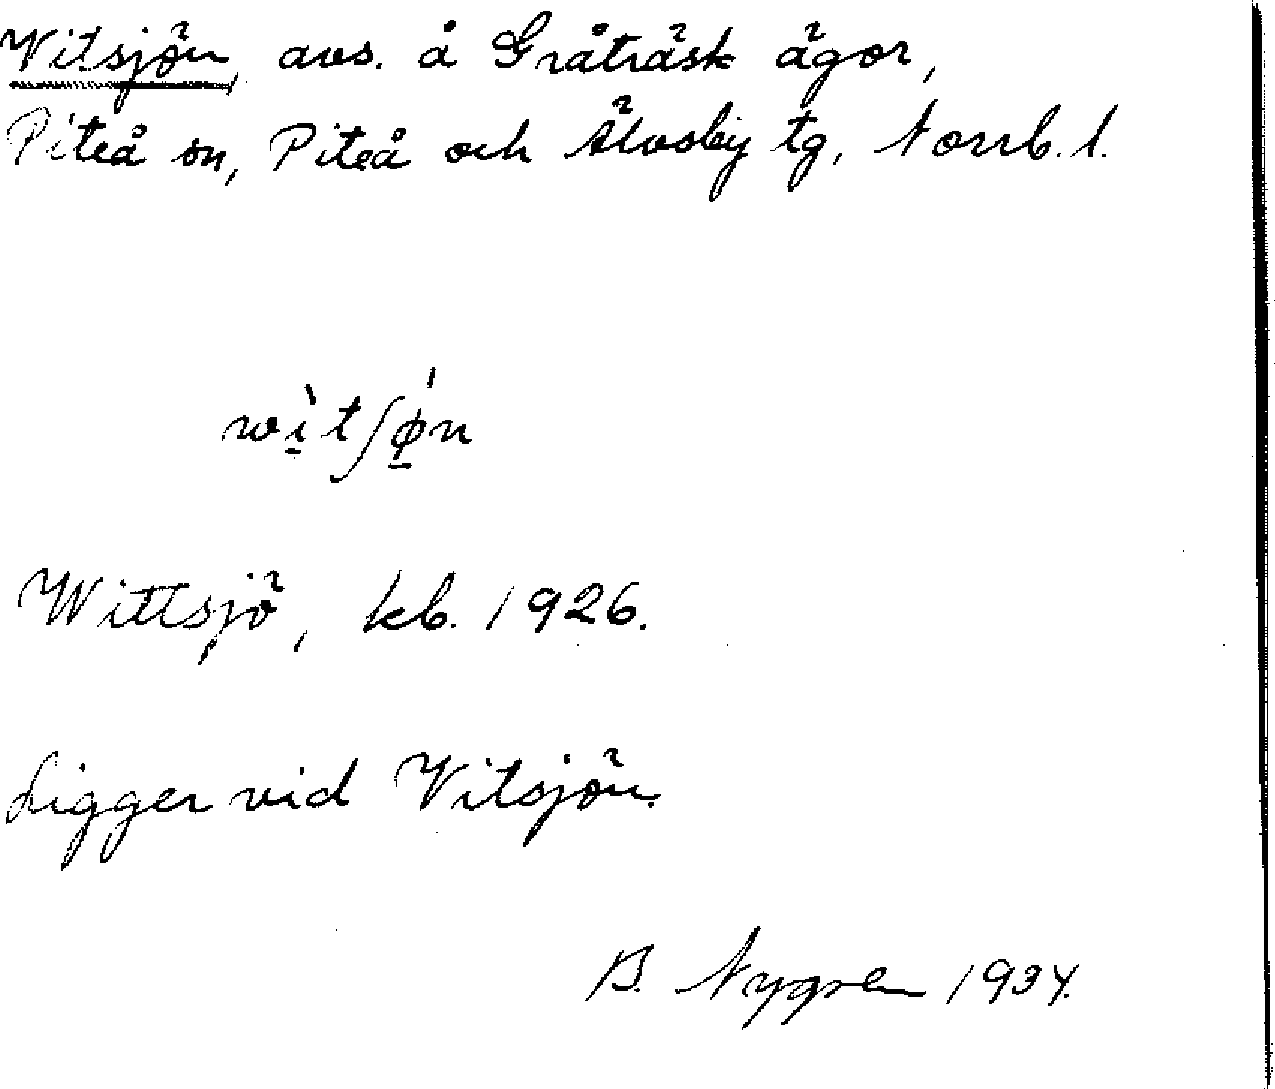 Vitsjön, avs. å Gråträsk ägor,
Piteå sn, Piteå och Älvsby tg, Norrb. l.
wì̠tʃǿ̠n
Wittsjö, kb. 1926.
Ligger vid Vitsjön.
B. Nygren 1934.